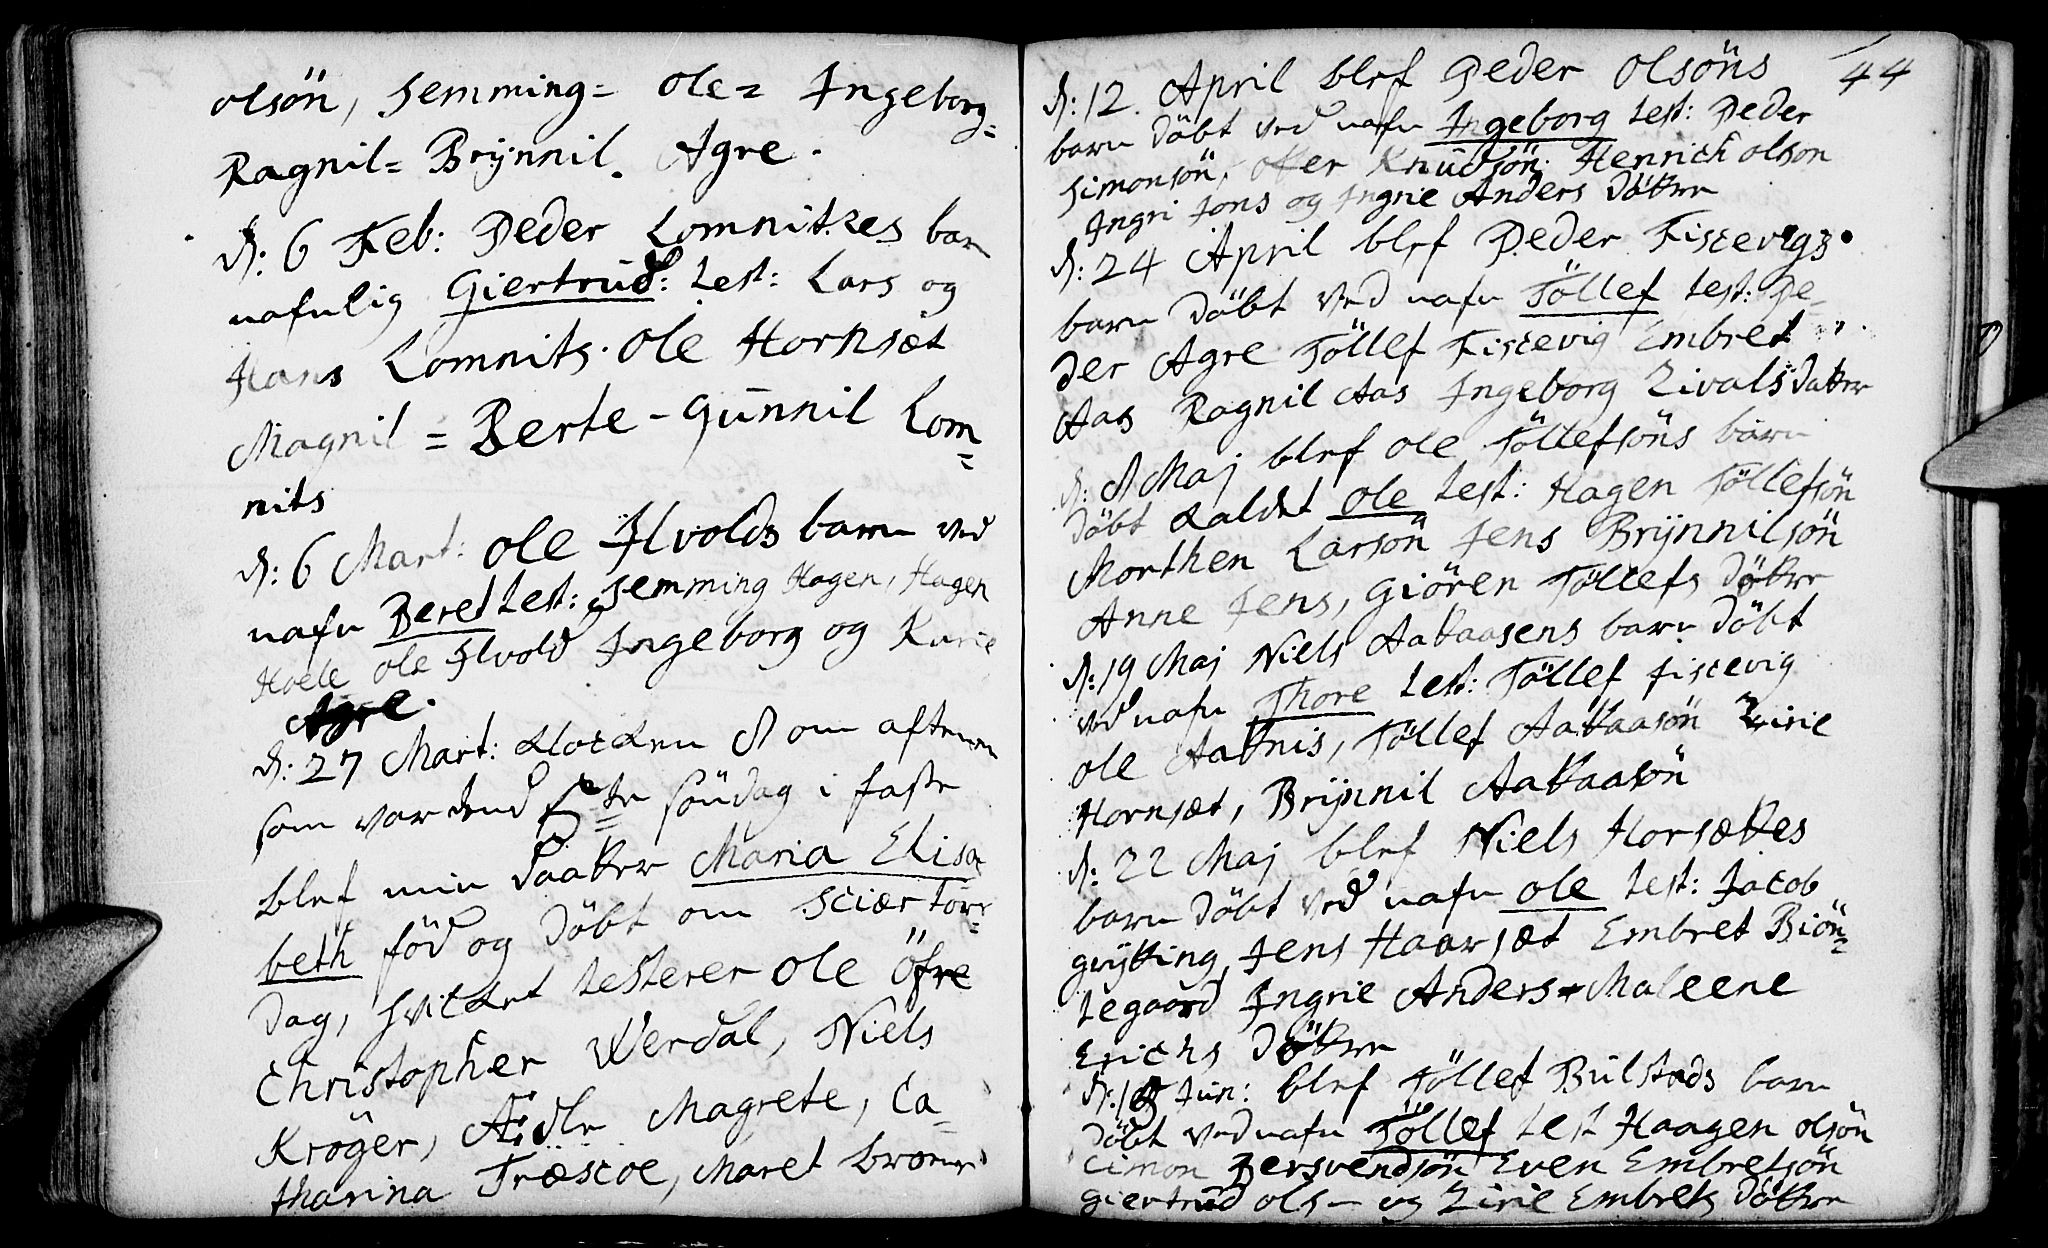 olsön, Semming= ole= Ingeborg=
Ragnil= Brÿnnil. Agre.
d: 6 Feb: Peder Lomnitzes barn
nafnlig Giertrud: test: Lars og
Hans Lomnits. Ole Hornsæt
Magnil = Berte - Gunnil Lom=
nits
d: 6 Mart: ole Ilvolds barn ved
nafn Beret test: Semming Hagen, Hagen
Hoele ole Ilvold Ingeborg og Karie
Agre.
d: 27 Mart: Klocken 8 om aftenen
som var dend 5te söndag i faste
blef min daatter Maria Elisa
beth föd og döbt om Sciær tors=
dag, hvilket testerer ole Öfre
Christopher Werdal, Niels
Kröger, Ædle Magrete, Ca=
tharina Træscoe, Maret
44
d: 12. April blef Peder Olsöns
barn döbt ved nafn Ingeborg test: Peder
Simonsön, Knudsön. Henrich olson
Ingri Jons og Ingrie Anders döttre
d: 24 April blef Peder Fiscevigs
barn döbt ved nafn Töllef test: Pe=
der Agre Töllef Fiscevig Embret
Aas Ragnil Aas Ingeborg Zivals datter
d: 8 Maj blef ole Töllefsöns barn
döbt kaldet ole test: Hagen Töllefsön
Morthen Larsön Jens Brÿnnilsön
Anne Jens, Giören Töllefs döttre
d: 19 Maj Niels Aakaasens barn döbt
ved nafn Thore test: Töllef fiscevig
ole Aaknis, Töllef Aakaasön Zirie
Hornsæt, Brÿnnil Aakaasön
d: 22 Maj blef Niels Horsættes
barn döbt ved nafn ole test: Jacob
grÿtting, Jens Haarsæt Embret Biön=
tegaard Ingrie Anders= Maleene
Erichs döttre
Jun: blef Töllef Bulstads barn
döbt ved nafn Töllef test Haagen olsön
Cimon Bersvendsön Even Embretsön
giertrud ols - og Zirie Embrets döttre